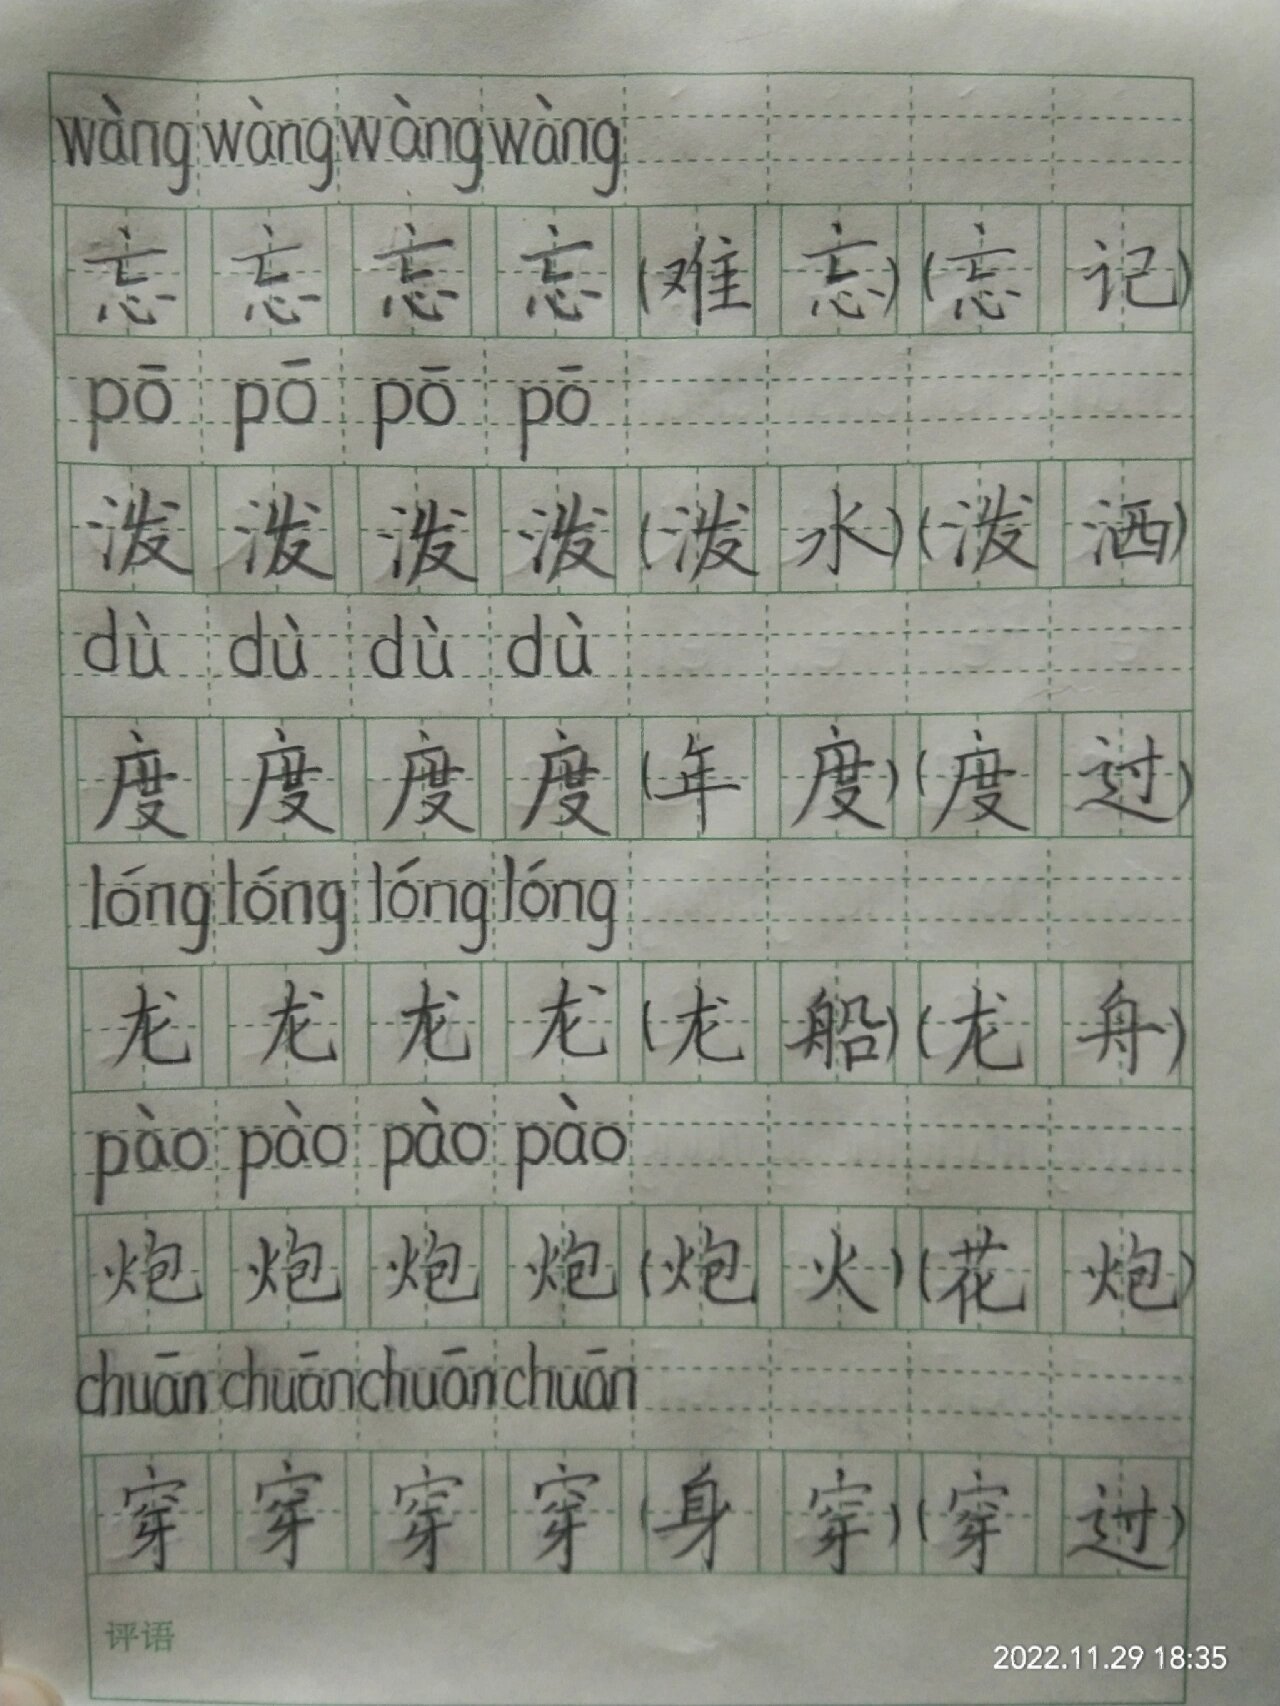 wàng wàng wàng wàng
忘 忘 忘 忘 (难 忘) (忘 记)
pō pō pō pō
泼 泼 泼 泼 (泼 水) (泼 洒)
dù dù dù dù
度 度 度 度 (年 度) (度 过)
lóng lóng lóng lóng
龙 龙 龙 龙 (龙 船) (龙 舟)
pào pào pào pào
炮 炮 炮 炮 (炮 火) (花 炮)
chuān chuān chuān chuān
穿 穿 穿 穿 (身 穿) (穿 过)
评语
2022.11.29 18:35